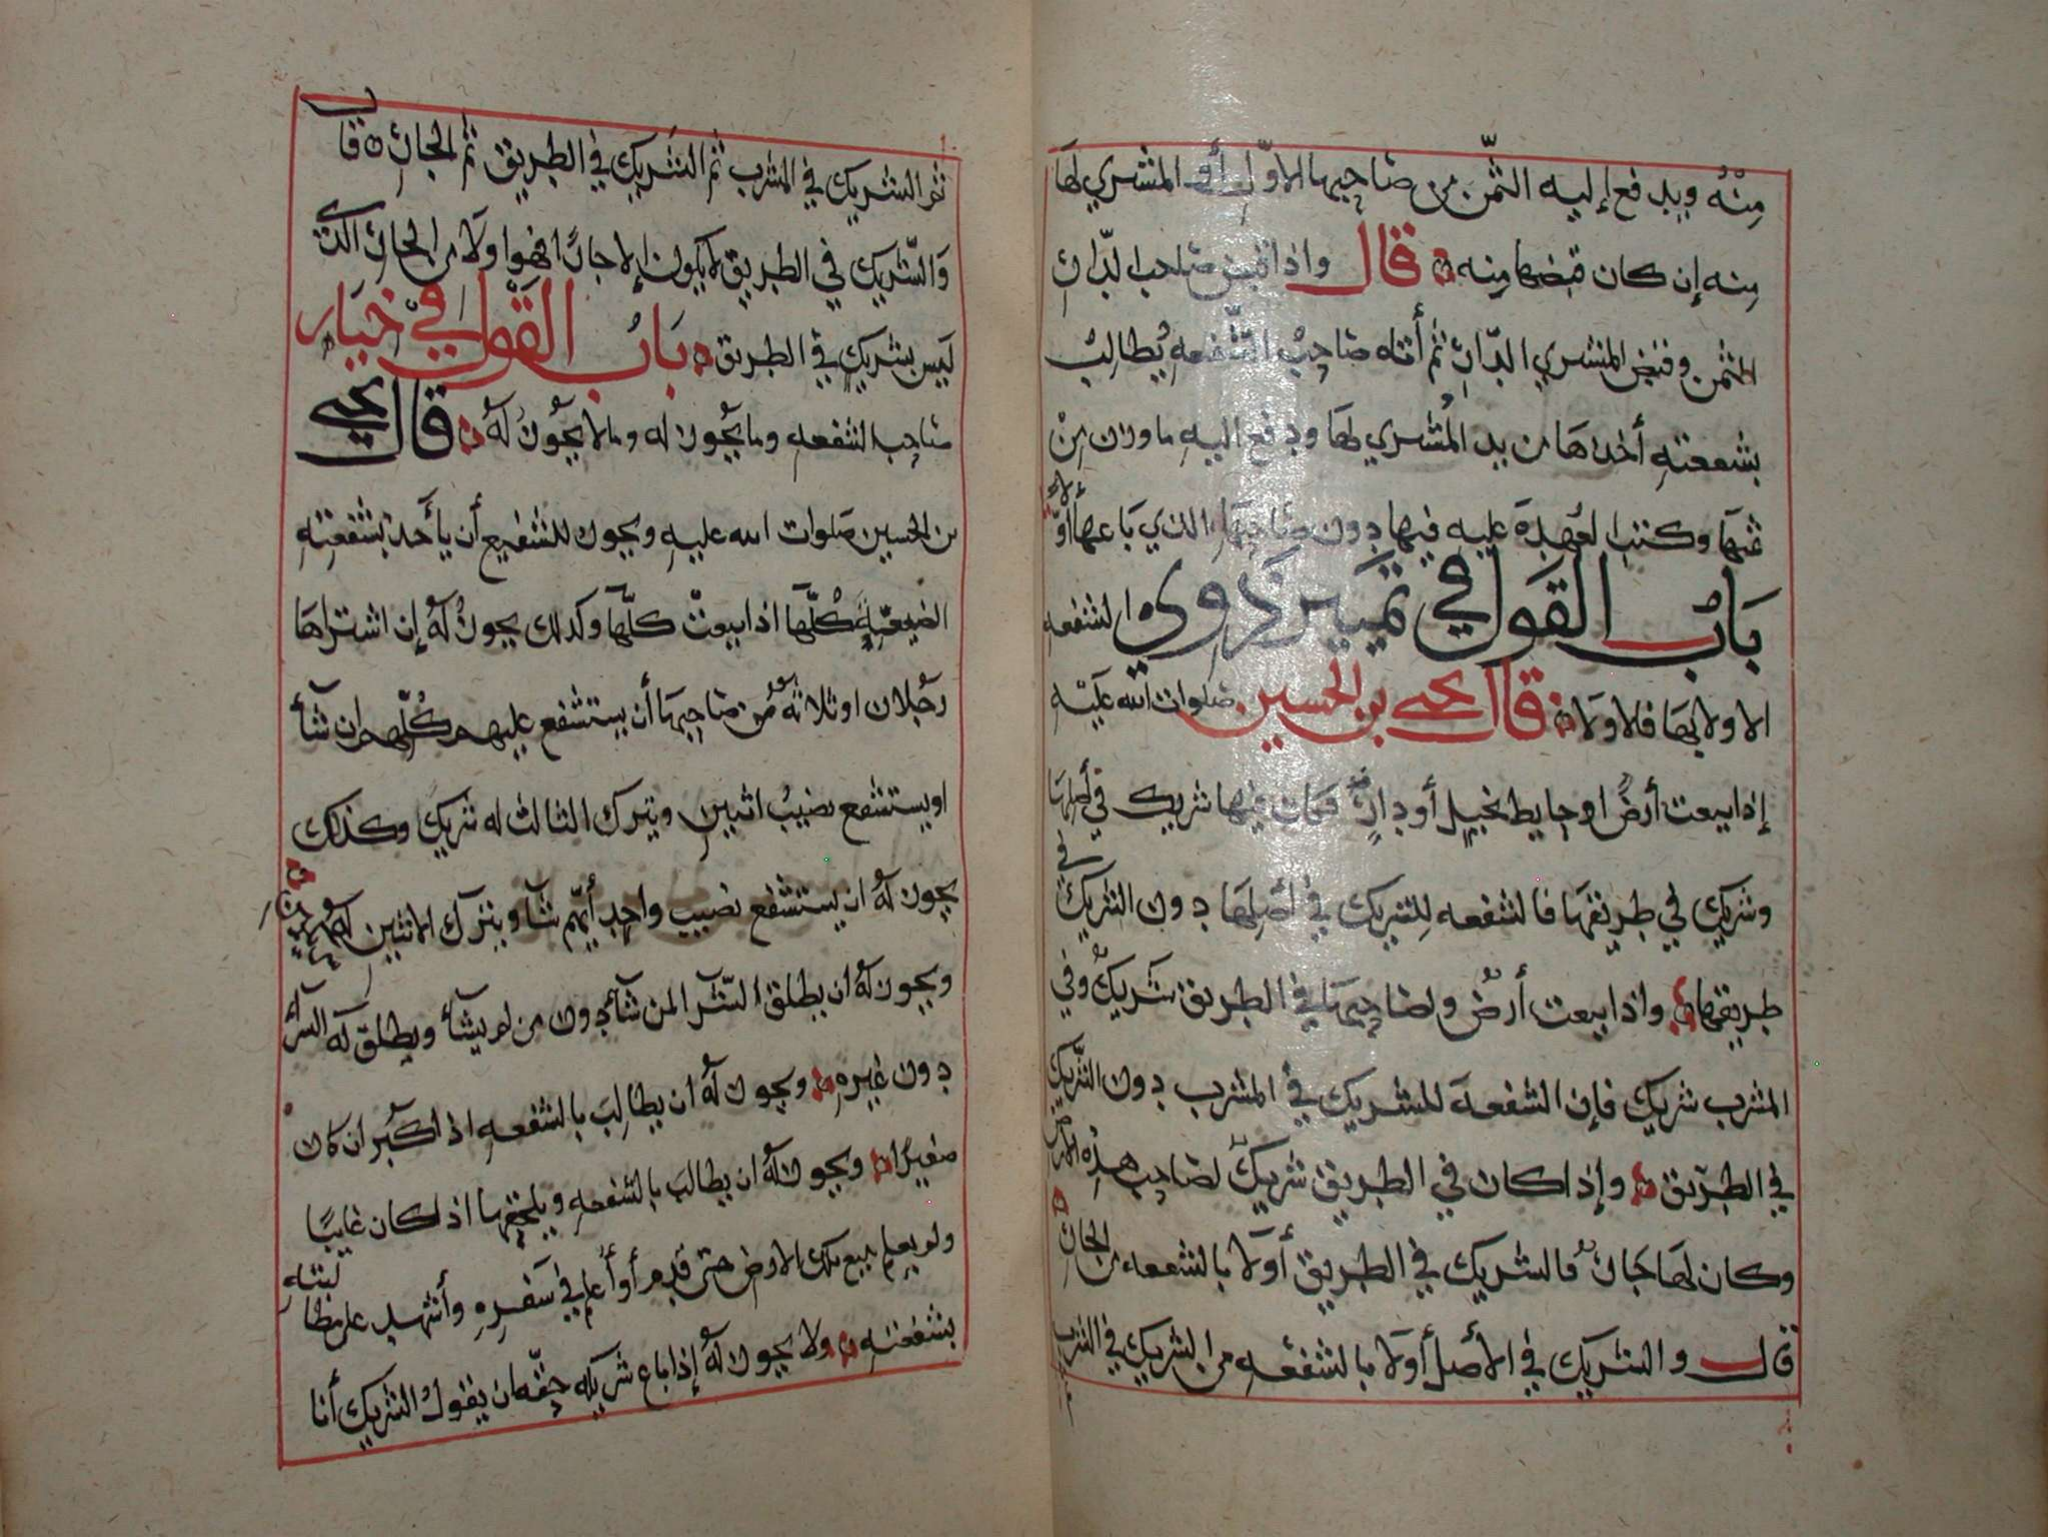 منه ويدفع إليه الثمن من صاحبها الاول أو المشتري لها
منه إن كان قبضها منه قال واذا قبض صاحب الدار
الثمن وقبض المشتري الدار ثم أتاه صاحب الشفعه يطالب
بشفعته أخذها من يد المشتري لها ودفع اليه ما وزن من
ثمنها وكتب العهدة عليه فيها دون صاحبها الذي باعها أولا
باب القول في تمييز ذوي الشفعه
الاولا بها فالاولا قال يحيى بن الحسين صلوات الله عليه
إذا بيعت أرض او حايط نخيل أو دار فكان فيها شريك في أصلها
وشريك في طريقها فالشفعه للشريك في أصلها دون الشريك في
طريقها واذا بيعت أرض ولصاحبها في الطريق شريك وفي
المشرب شريك فإن الشفعة للشريك في المشرب دون الشريك
في الطريق وإذا كان في الطريق شريك لصاحب هذه الارض
وكان لها جار فالشريك في الطريق أولا بالشفعه من الجار
قال والشريك في الأصل أولا بالشفعه من الشريك في الشرب
ثم الشريك في المشرب ثم الشريك في الطريق ثم الجار قال
والشريك في الطريق لا يكون إلا جارا فهوا ولا من الجار الذي
ليس بشريك في الطريق باب القول في خيار
صاحب الشفعه وما يجوز له وما لا يجوز له قال يحيى
بن الحسين صلوات الله عليه ويجوز للشفيع أن يأخذ بشفعته
الضيعة كلها اذا بيعت كلها وكذلك يجوز له إن اشتراها
رجلان او ثلاثة من صاحبها أن يستشفع عليهم كلهم ان شأ
او يستشفع نصيب اثنين ويترك الثالث له شريك وكذلك
يجوز له ان يستشفع نصيب واحد أيهم شآ ويترك الاثنين
ويجوز له ان يطلق الشرا لمن شآء دون من لم يشأ ويطلق له الشرا
دون غيره ويجوز له ان يطالب بالشفعه اذا كبر ان كان
صغيرا ويجوز له ان يطالب بالشفعه ويلحقها اذا كان غايبا
ولم يعلم ببيع تلك الارض حتى قدم أو أعلم في سفره وأشهد على مطالبته
بشفعته ولا يجوز له إذا باع شريكه حقه ان يقول الشريك أنا